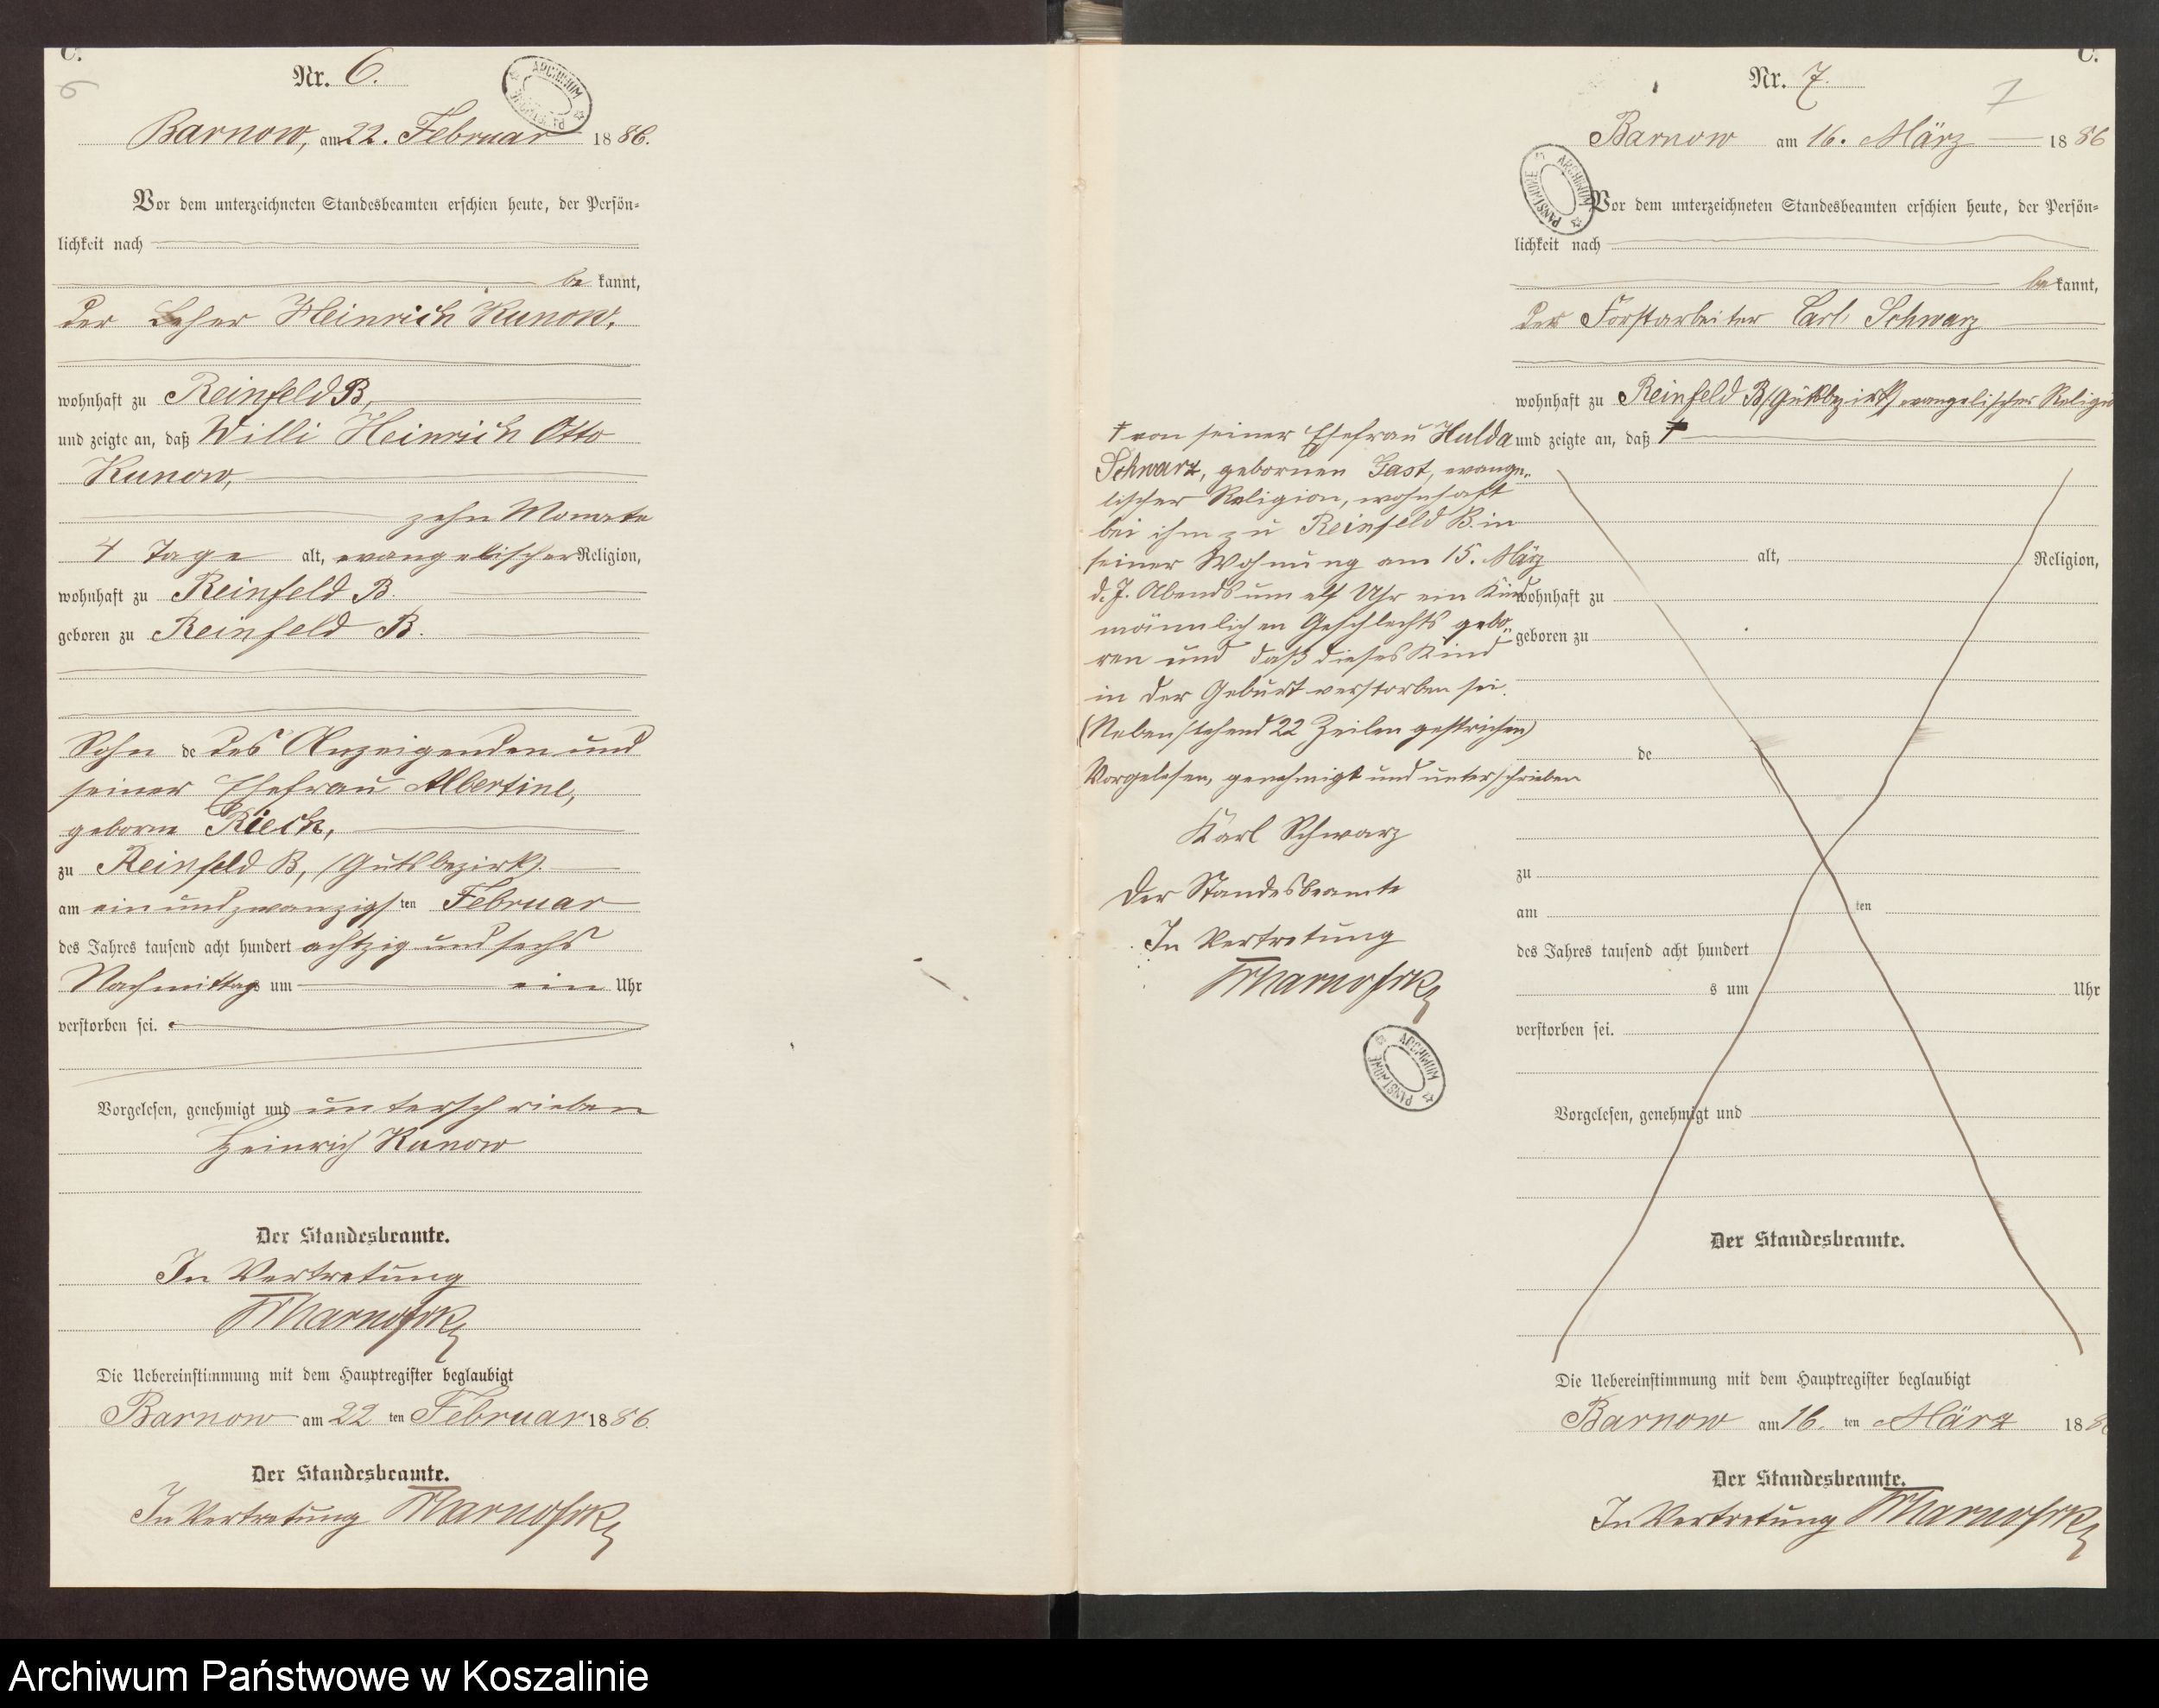 C.
6
Nr. 6.
Barnow, am 22. Februar 1886.
Vor dem unterzeichneten Standesbeamten erschien heute, der Persön-
lichkeit nach
be kannt,
der Heinrich Kunow,
wohnhaft zu Reinfeld B,
und zeigte an, daß Willi Heinrich Otto
Kunow,
zehn Monate
4 Tage alt, evangelischer Religion,
wohnhaft zu Reinfeld B.
geboren zu Reinfeld B.
Sohn de des Anzeigenden und
seiner Ehefrau Albertine,
geborne Rieck,
zu Reinfeld B, (Gutsbezirk).
am ein und zwanzigsten Februar
des Jahres tausend acht hundert achtzig und sechs
Nachmittags um ein Uhr
verstorben sei.
Vorgelesen, genehmigt und unterschrieben
Heinrich Kunow
Der Standesbeamte.
In Vertretung
Die Uebereinstimmung mit dem Hauptregister beglaubigt
Barnow am 22 ten Februar 1886.
Der Standesbeamte.
In Vertretung
ARCHIWUM
C.
Nr. 7.
7
Barnow am 16. März 1886
ARCHIWUM PAŃSTWOWE
Vor dem unterzeichneten Standesbeamten erschien heute, der Persön-
lichkeit nach
be kannt,
der Forstarbeiter Carl Schwarz
wohnhaft zu Reinfeld B (Gutsbezirk) evangelischer Religion
und zeigte an, daß †
alt, Religion,
wohnhaft zu
geboren zu
de
zu
am ten
des Jahres tausend acht hundert
s um Uhr
verstorben sei.
Vorgelesen, genehmigt und
Der Standesbeamte.
† von seiner Ehefrau Hulda
Schwarz, gebornen Gast, evange-
lischer Religion, wohnhaft
bei ihm zu Reinfeld B. in
seiner Wohnung am 15. März
d. J. Abends um elf Uhr ein Kind
männlichen Geschlechts gebo-
ren und daß dieses Kind
in der Geburt verstorben sei.
(Nebenstehend 22 Zeilen gestrichen)
Vorgelesen, genehmigt und unterschrieben
Karl Schwarz
Der Standesbeamte
In Vertretung
ARCHIWUM PAŃSTWOWE
Die Uebereinstimmung mit dem Hauptregister beglaubigt
Barnow am 16. ten März 1886
Der Standesbeamte.
In Vertretung
Archiwum Państwowe w Koszalinie